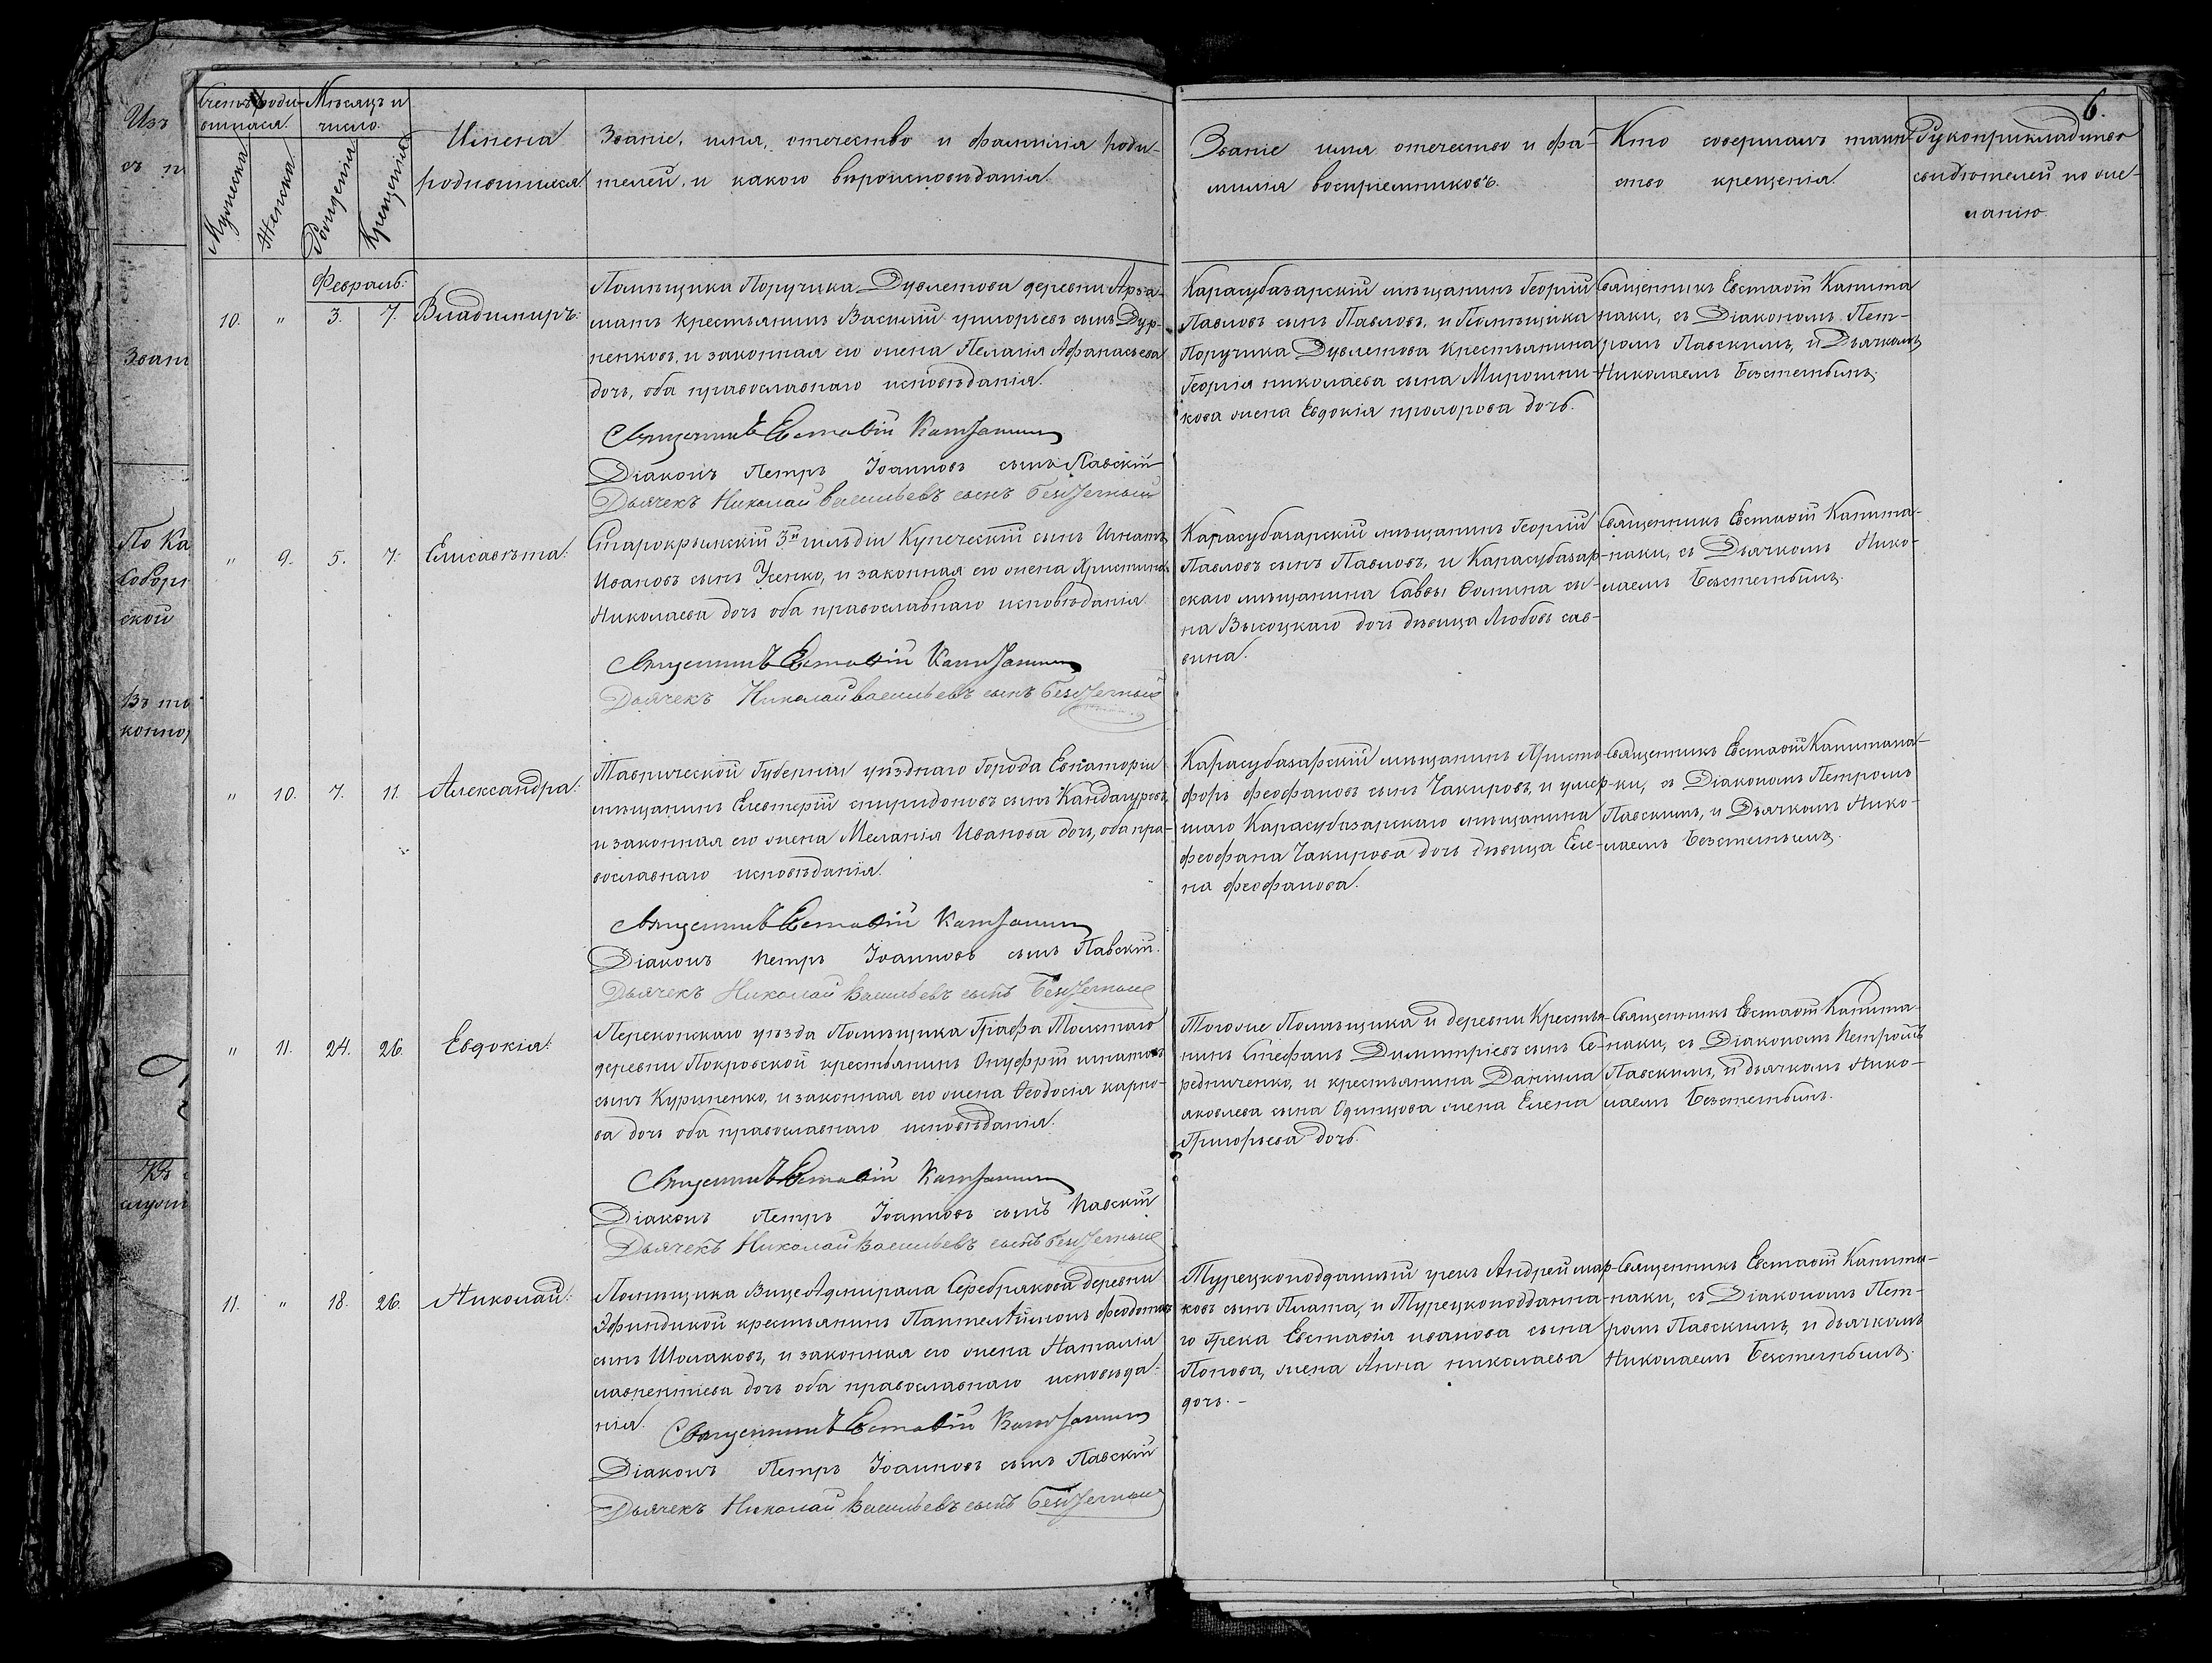 Изъ
съ п
Зван
По Ка
Собор
ской
Въ то
коппо
Счетъ роди-
вшихся.
Мѣсяцъ и
число.
Мужеска.
Женска.
Рожденія.
Крещенія.
Имена
родившихся.
Званіе, имя, отечество и фамилія роди-
телей, и какого вѣроисповѣданія.
Званіе имя отечество и фа-
милія воспріемниковъ.
Кто совершалъ таин-
ство крещенія.
Рукоприкладство
свидѣтелей по же-
ланію.
6.
Февраль:
10. " 3. 7. Владимиръ:
Помѣщика Поручика Дувлетова деревни Арга-
матъ крестьянинъ Василій григорьевъ сынъ Дур-
ненковъ, и законная его жена Пелагія Афанасьева
дочь, оба православнаго исповѣданія.
Священникъ Евставій
Діаконъ Петръ Іоанновъ сынъ Павскій
Дьячекъ Николай Васильевъ сынъ
Карасубазарскій мѣщанинъ Георгій
Павловъ сынъ Павловъ, и Помѣщика
Поручика Дувлетова крестьянина
Георгія николаева сына Мирошни-
кова жена Евдокія прохорова дочь.
Священникъ Евставій Капита
наки, съ Діакономъ Пет-
ромъ Павскимъ, и Дьячкомъ
Николаемъ
" 9. 5. 7: Елисавѣта:
Старокрымскій 3й гильдіи Купеческій сынъ Игнатъ
Ивановъ сынъ Усенко, и законная его жена Христина
Николаева дочь оба православнаго исповѣданія
Священникъ Евставій
Дьячекъ Николай Васильевъ сынъ
Карасубазарскій мѣщанинъ Георгій
Павловъ сынъ Павловъ, и Карасубазар-
скаго мѣщанина Саввы Ѳомина сы-
на Высоцкаго дочь дѣвица Любовь сав-
вина.
Священникъ Евставій Капита-
наки, съ Дьячкомъ Нико-
лаемъ
" 10. 7. 11. Александра:
Таврической Губерніи уѣзднаго Города Евпаторіи
мѣщанинъ Елевтерій спиридоновъ сынъ
и законная его жена Меланія Иванова дочь, оба пра-
вославнаго исповѣданія.
Священникъ Евставій
Діаконъ Петръ Іоанновъ сынъ Павскій.
Дьячекъ Николай Васильевъ сынъ
Карасубазарскій мѣщанинъ Христо
форъ феофановъ сынъ Чакировъ, и умер-
шаго Карасубазарскаго мѣщанина
феофана Чакирова дочь дѣвица Еле-
на феофанова.
Священникъ Евставій Капитана-
ки, съ Діакономъ Петромъ
Павскимъ, и Дьячкомъ Нико-
лаемъ
" 11. 24. 26. Евдокія:
Перекопскаго уѣзда Помѣщика Графа Толстаго
деревни Покровской крестьянинъ Онуфрій игнатовъ
сынъ Куриненко, и законная его жена Ѳеодосія карпо-
ва дочь оба православнаго исповѣданія.
Священникъ Евставій
Діаконъ Петръ Іоанновъ сынъ Павскій
Дьячекъ Николай Васильевъ сынъ
Тогоже Помѣщика и деревни Крестья-
нинъ Стефанъ Димитріевъ сынъ Се-
редниченко, и крестьянина Даніила
яковлева сына Одинцова жена Елена
Григорьева дочь.
Священникъ Евставій Капита-
наки, съ Діакономъ Петромъ
Павскимъ, и дьячкомъ Нико-
лаемъ
11. " 18. 26. Николай:
Помѣщика ВицеАдмирала Серебрякова деревни
крестьянинъ Пантелѣймонъ Феодотовъ
сынъ Шолаковъ, и законная его жена Наталія
лаврентіева дочь оба православнаго исповѣда-
нія.
Священникъ Евставій
Діаконъ Петръ Іоанновъ сынъ Павскій
Дьячекъ Николай Васильевъ сынъ
Турецкоподданный грекъ Андрей мар-
ковъ сынъ Плата, и Турецкоподданна-
го Грека Евставія иванова сына
Попова, жена Анна николаева
дочь. -
Священникъ Евставій Капита-
наки, съ Діакономъ Пет-
ромъ Павскимъ, и дьячкомъ
Николаемъ